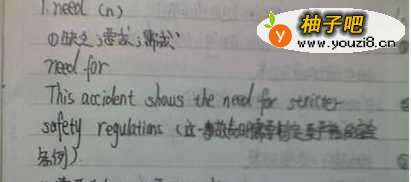 1. need (n)
柚子吧
y
www.youzi8.cn
①缺乏;需求;需求
need for
This accident shows the need for stricter
safety regulations (这一事故表明需要制定更严格的安全
条例)